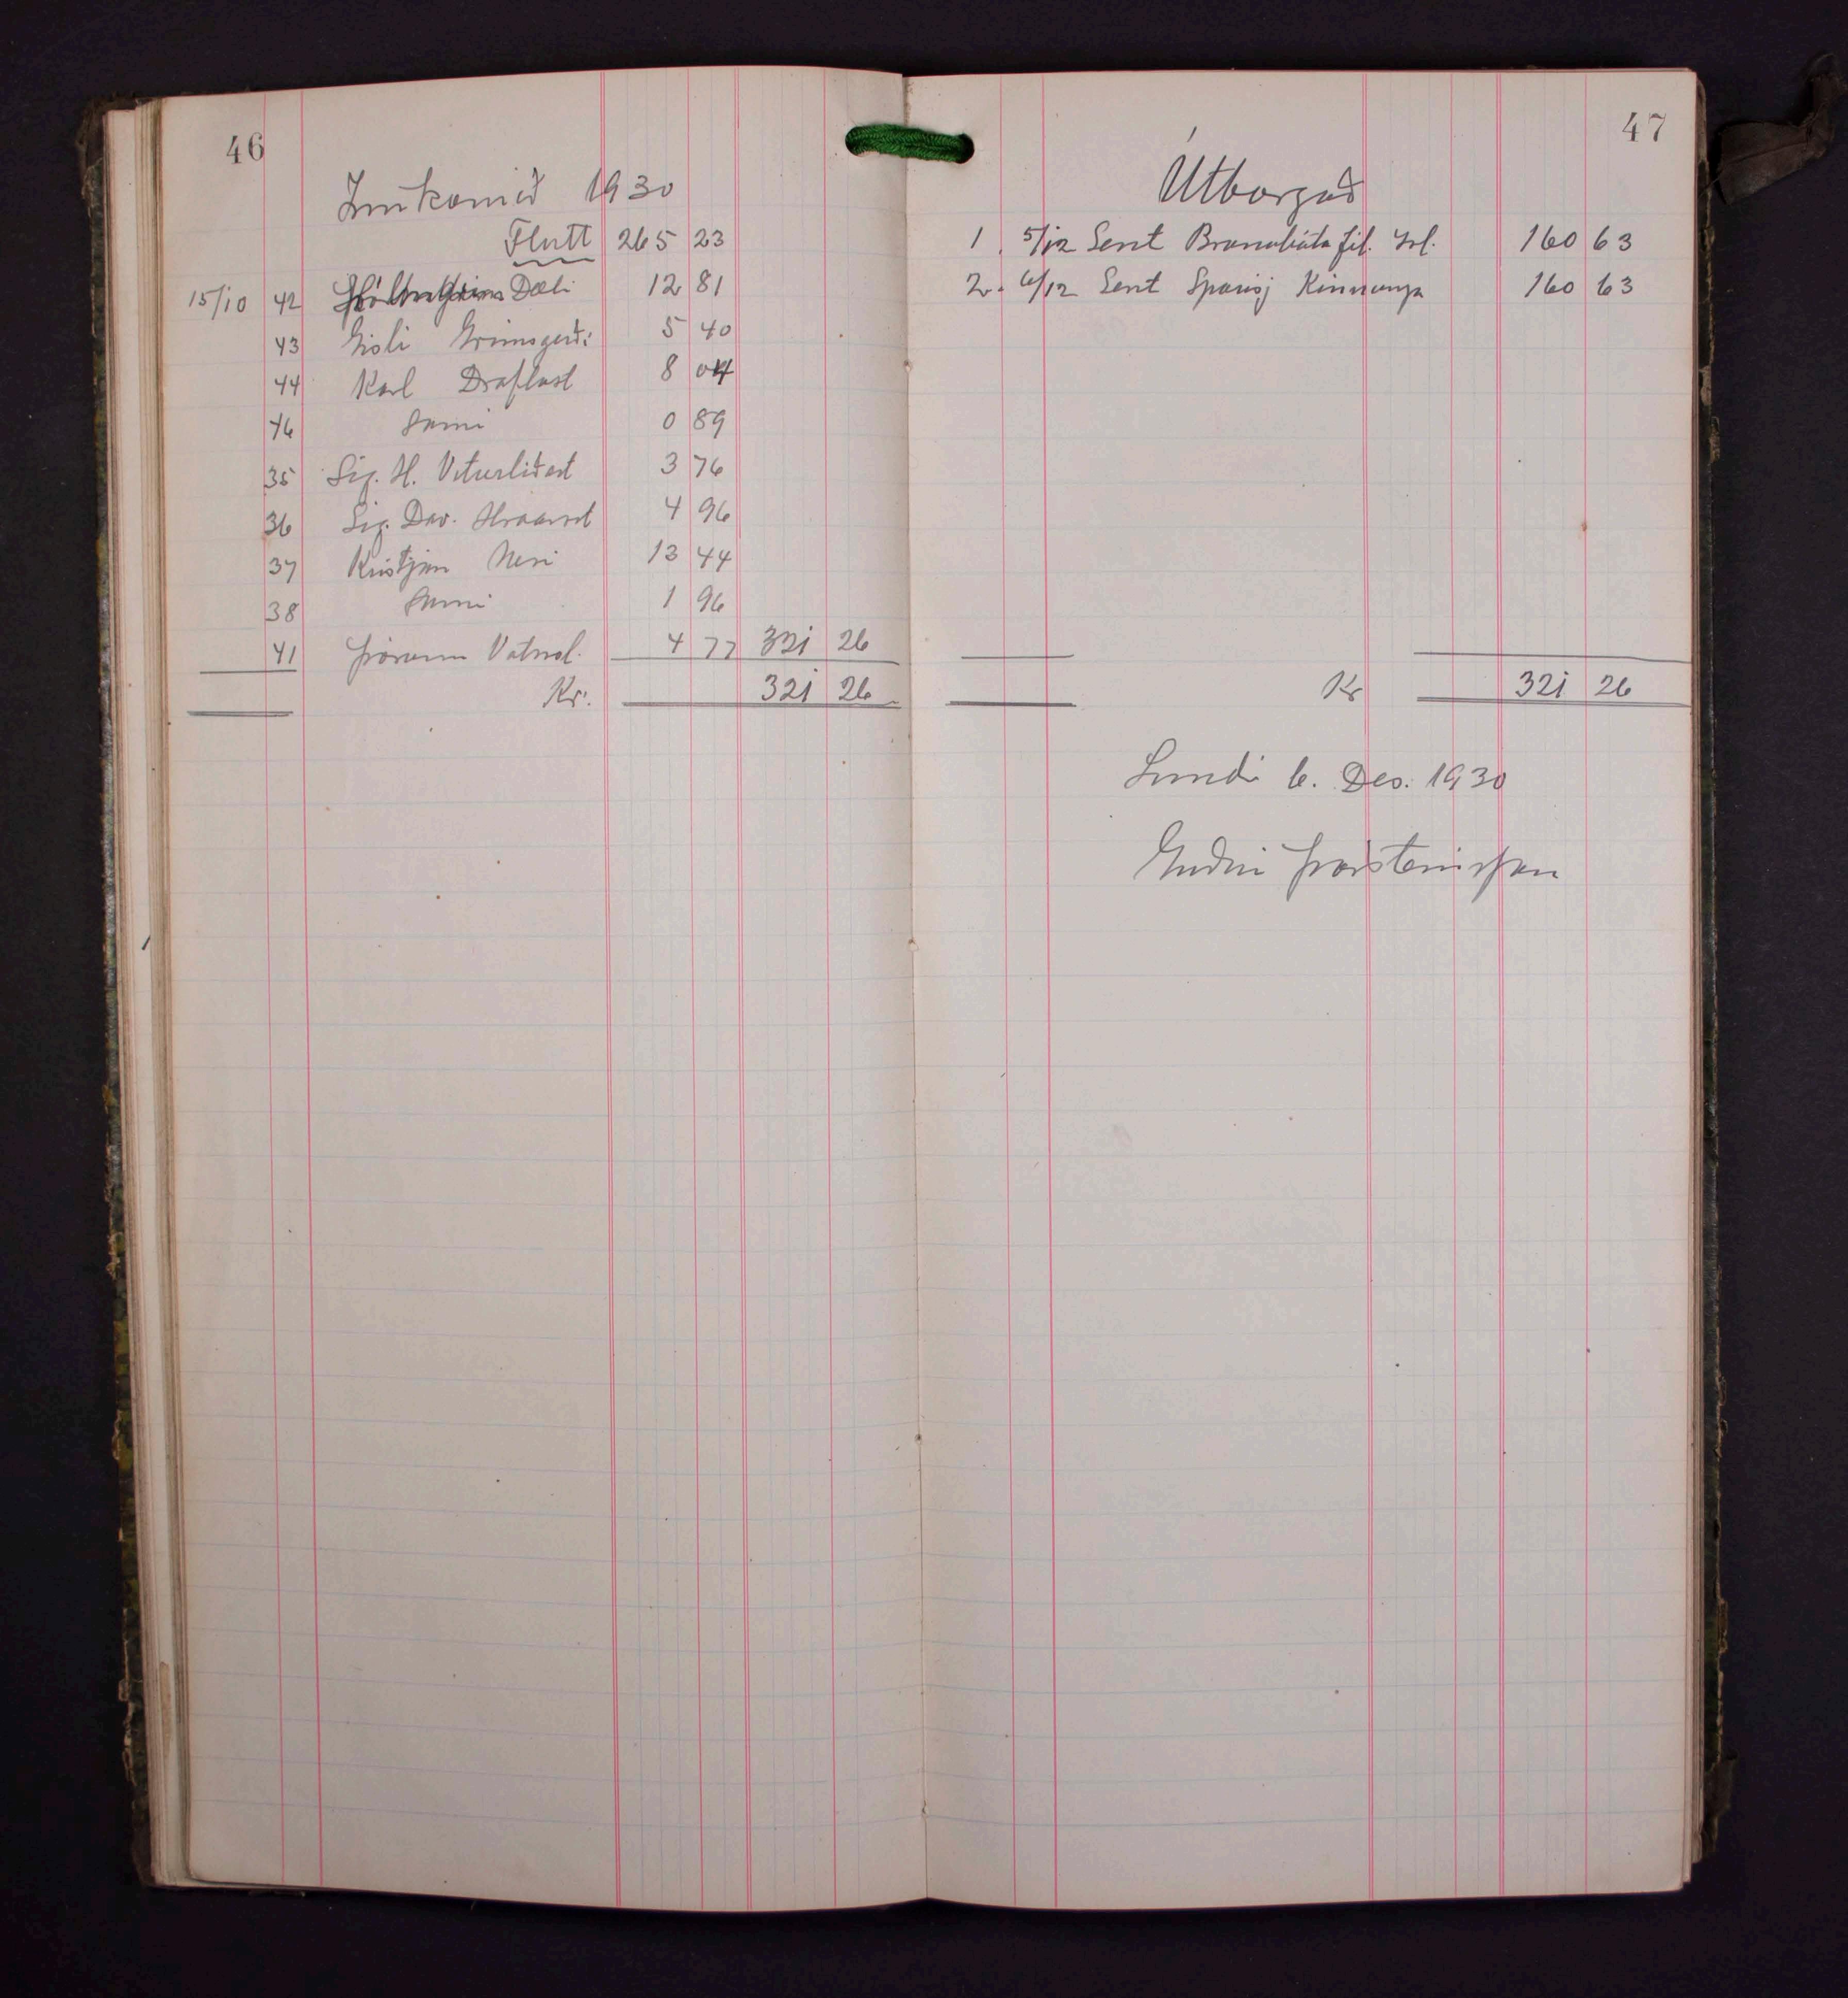 46
Innkomið 1930
Flutt 265 23
15/10 42 Dæli 12 81
43 Gísli Grímsgerði 5 40
44 Karl Draflast 8 04
46 Sami 0 89
35 Sig. H. Veturliðast 3 76
36 Sig. Dav. 4 96
37 Kristján Nesi 13 44
38 Sami 1 96
41 Þórarinn Vatnsl. 4 77 321 26
Kr. 321 26
47
Útborgað
1. 5/12 Sent Brunabótafél. Ísl. 160 63
2. 6/12 Sent Sparisj Kinnunga 160 63
Kr 321 26
Lundi 6. Des. 1930
Guðni Þorsteinsson